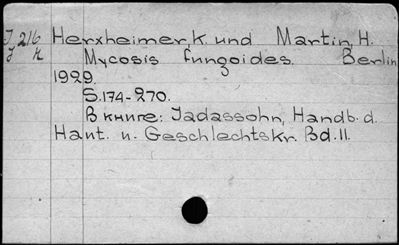 J 216 Herxheimer, K. und Martin, H.
J K Mycosis fungoides. Berlin
1929.
S. 174-270.
В книге: Jadassohn, Handb. d.
Haut. u. Geschlechtskr. Bd. II.